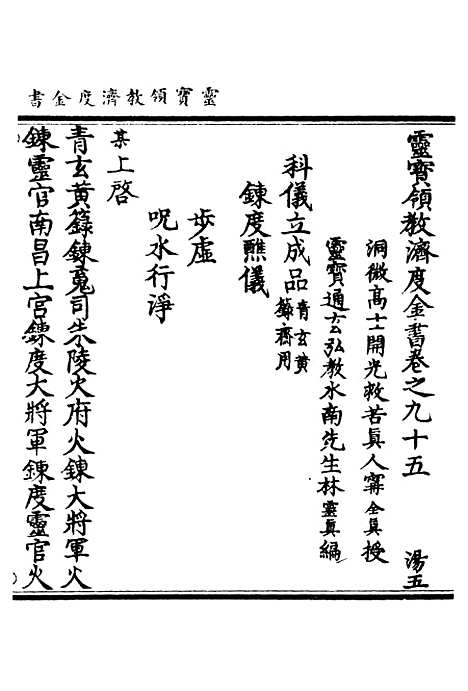 靈寳領教濟度金書
靈寳領教濟度金書卷之九十五 湯五
洞微髙士開光救苦眞人甯全眞授
靈寳通玄弘教水南先生林靈眞編
科儀立成品青玄黄籙齋用
鍊度醮儀
歩虛
呪水行淨
某上啓
青玄黄籙鍊䰟司朱陵火府火鍊大將軍火
鍊靈官南昌上宮鍊度大將軍鍊度靈官火